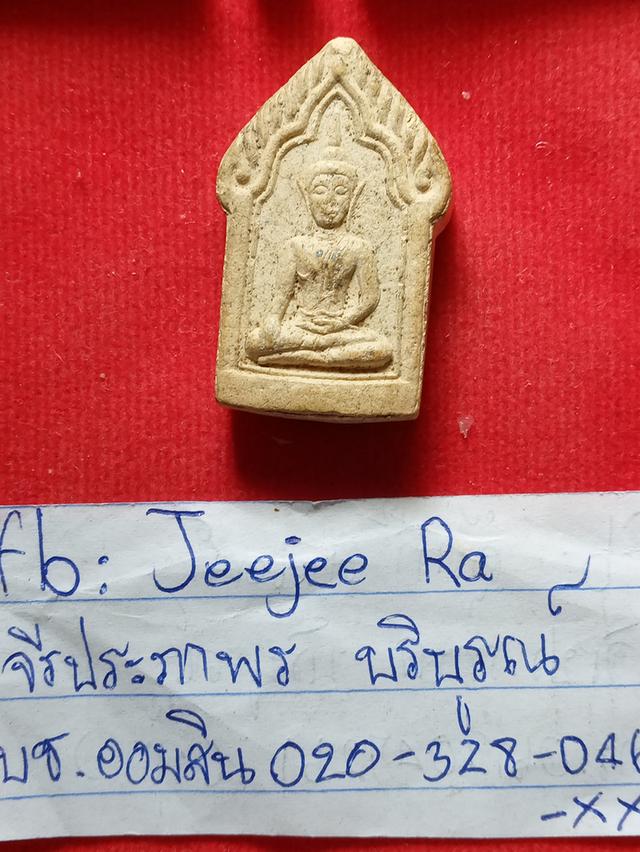 fb: Jeejee Ra
จีรประภาพร บริบูรณ์
บช. ออมสิน 020-328-046
-xx